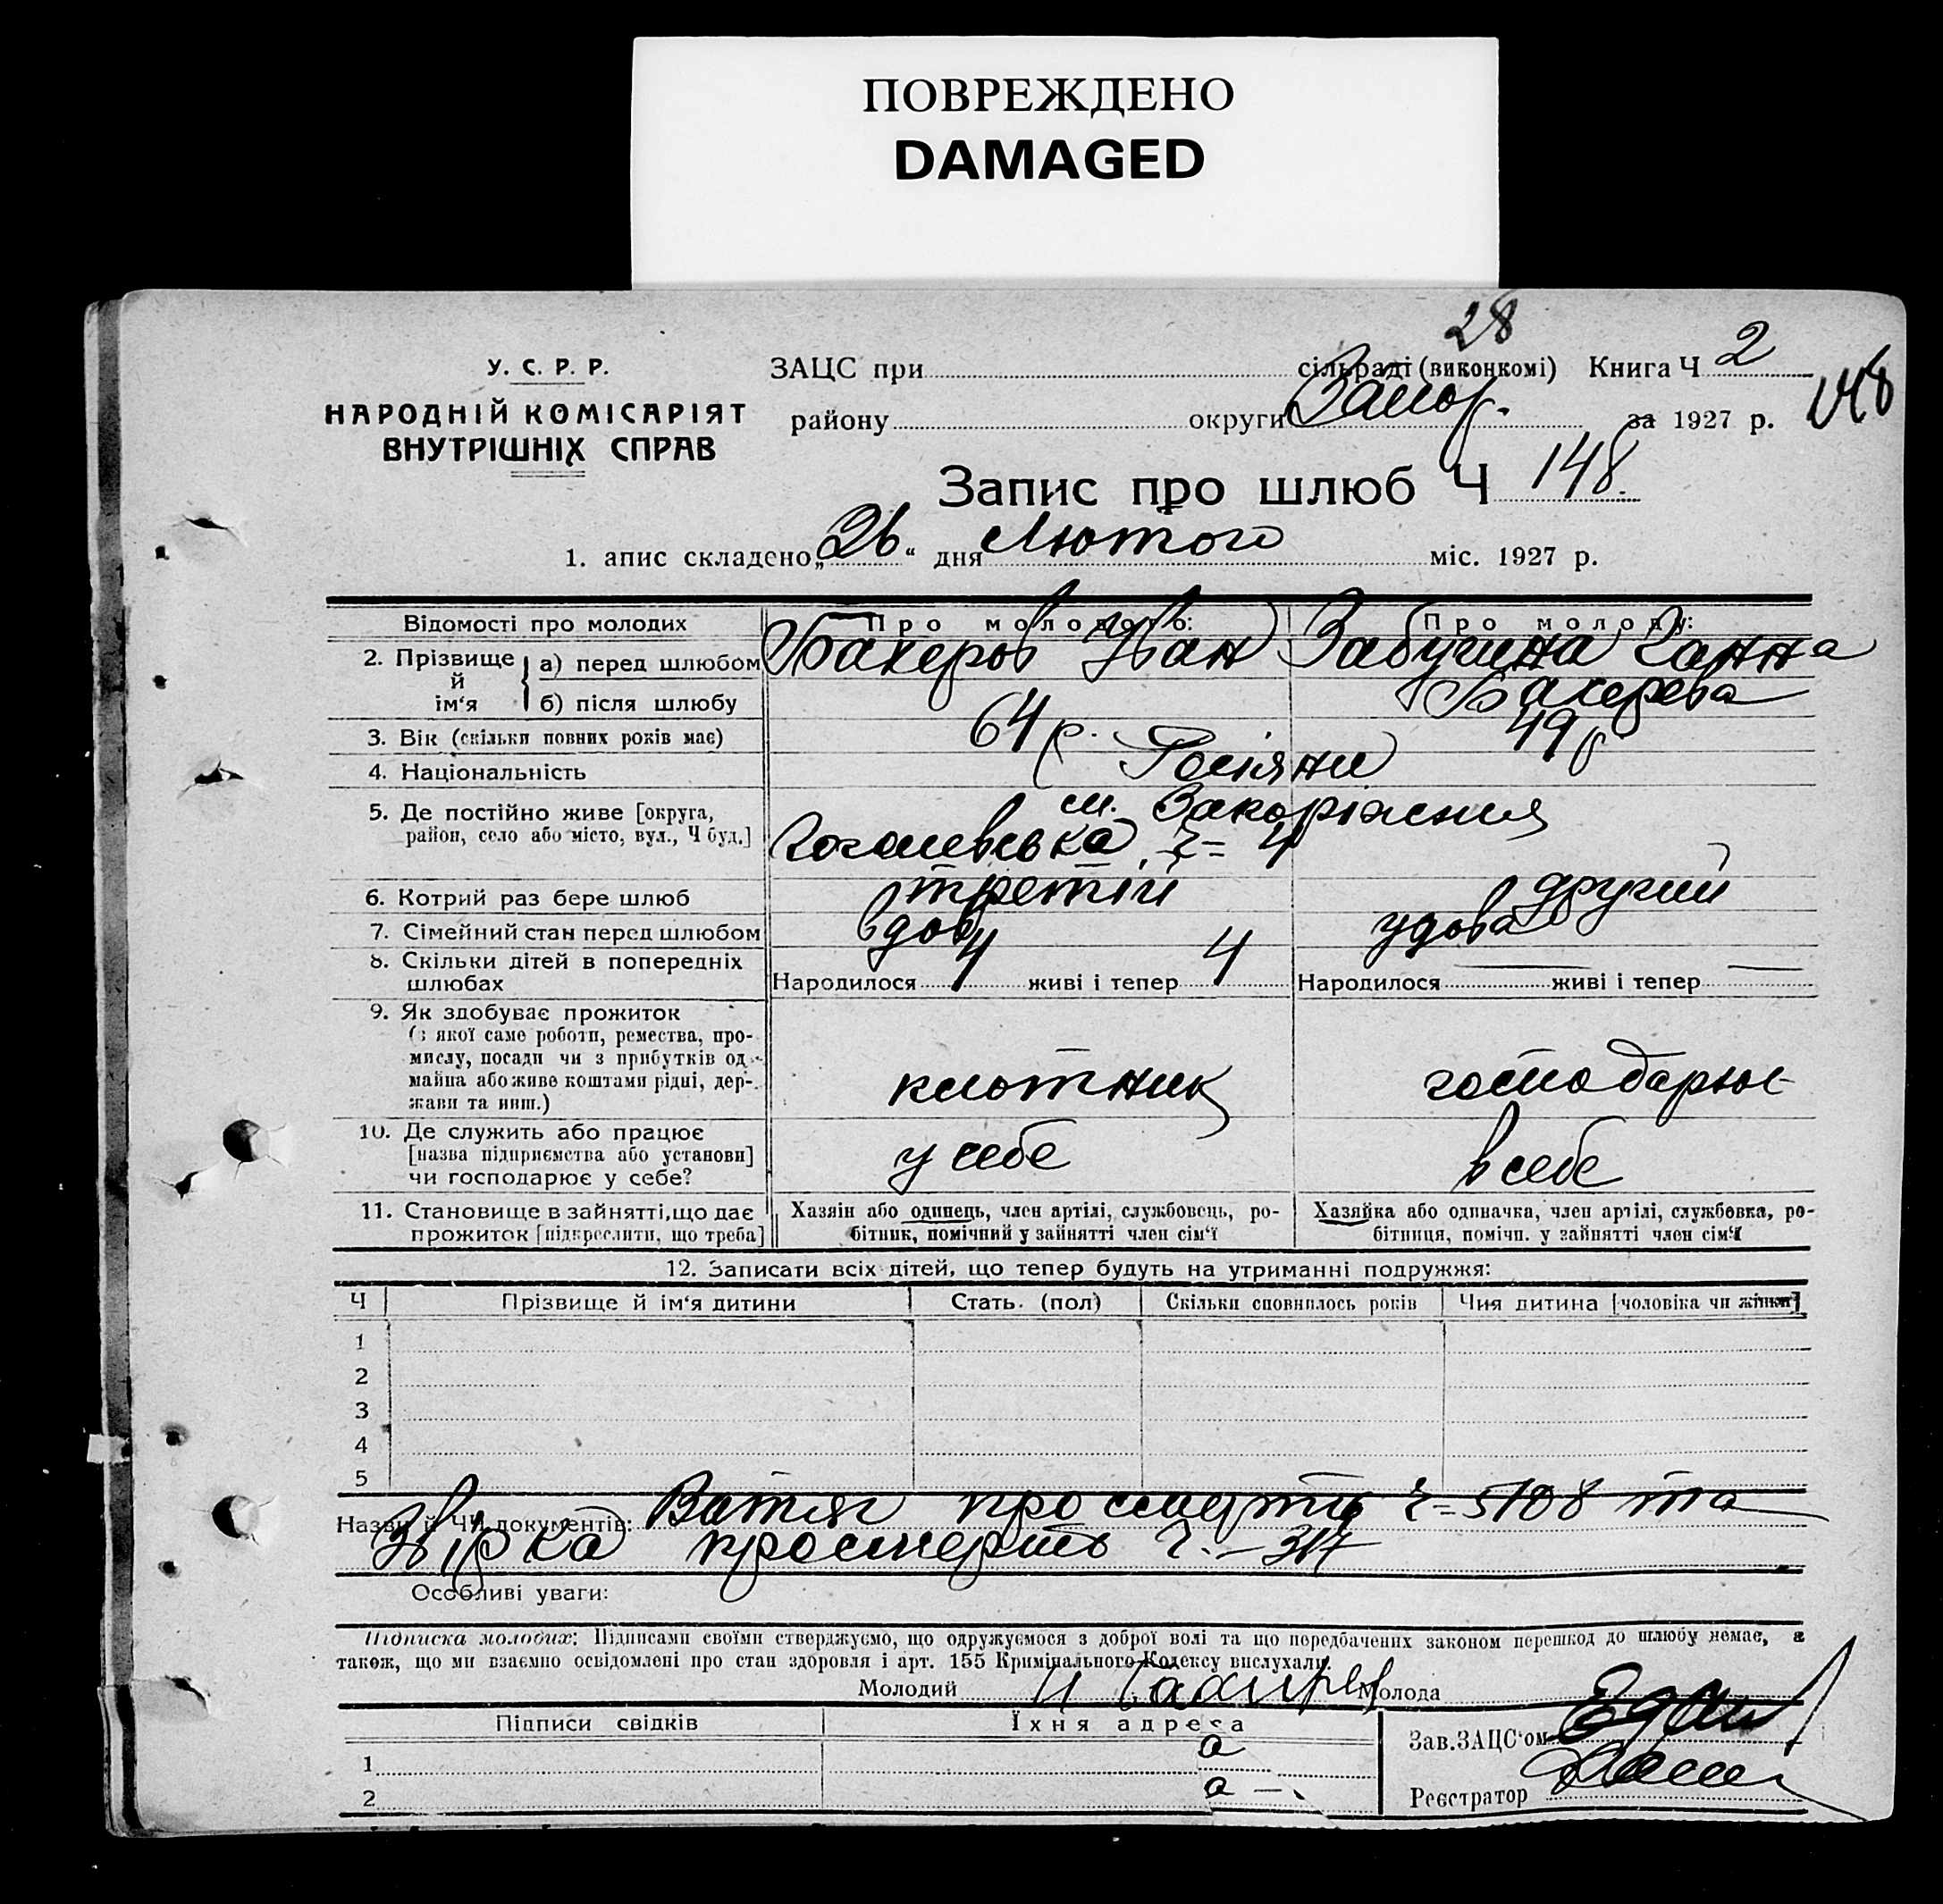 ПОВРЕЖДЕНО
DAMAGED
28
У. С. Р. Р.
НАРОДНІЙ КОМІСАРІЯТ
ВНУТРІШНІХ СПРАВ
ЗАЦС при сільраді (виконкомі) Книга Ч 2
району округи Запор. за 1927 р. 148
Запис про шлюб Ч 148.
1. апис складено „26." дня Лютого міс. 1927 р.
Відомості про молодих Про молодого: Про молоду:
2. Прізвище й ім'я а) перед шлюбом Бакеров Іван Забугина Ганна
б) після шлюбу Бакерова
3. Вік (скільки повних років має) 64 р. 49 р
4. Національність Росіяни
5. Де постійно живе [округа, м. Запоріжжя
район, село або місто, вул., Ч буд.] Гоголевська, Ч= 4
6. Котрий раз бере шлюб третій другий
7. Сімейний стан перед шлюбом вдов удова
8. Скільки дітей в попередніх
шлюбах Народилося 4 живі і тепер 4 Народилося — живі і тепер —
9. Як здобуває прожиток
(з якої саме роботи, ремества, про-
мислу, посади чи з прибутків од
майна або живе коштами рідні, дер-
жави та инш.) плотник господарює
10. Де служить або працює
[назва підприємства або установи]
чи господарює у себе? у себе в себе
11. Становище в зайнятті, що дає
прожиток [підкреслити, що треба]
Хазяїн або одинець, член артілі, службовець, ро-
бітник, помічний у зайнятті член сім'ї
Хазяйка або одиначка, член артілі, службовка, ро-
бітниця, помічн. у зайнятті член сім'ї
12. Записати всіх дітей, що тепер будуть на утриманні подружжя:
Ч Прізвище й ім'я дитини Стать (пол) Скільки сповнилось років Чия дитина [чоловіка чи жінки]
1
2
3
4
5
Назви й ЧЧ документів: Витяг про смерть Ч=5108 та
про смерть Ч.– 317
Особливі уваги:
Підписка молодих: Підписами своїми стверджуємо, що одружуємося з доброї волі та що передбачених законом перешкод до шлюбу немає, а
також, що ми взаємно освідомлені про стан здоровля і арт. 155 Кримінального Кодексу вислухали.
Молодий Молода
Підписи свідків Їхня адреса
1 а
2 а –
Зав. ЗАЦС'ом
Реєстратор